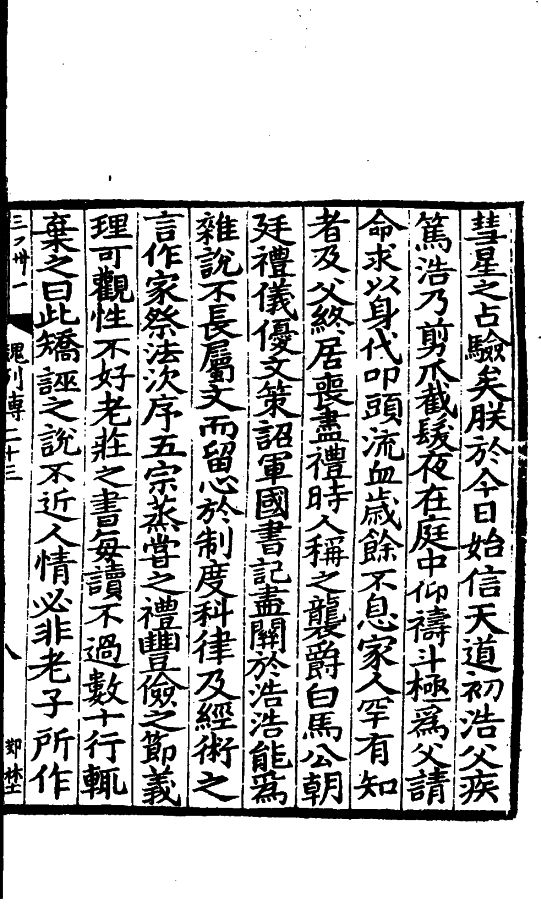 彗星之占驗矣朕於今日始信天道初浩父疾
篤浩乃剪爪截髮夜在庭中仰禱斗極爲父請
命求以身代叩頭流血歲餘不息家人罕有知
者及父終居喪盡禮時人稱之襲爵白馬公朝
廷禮儀優文策詔軍國書記盡關於浩浩能爲
雜說不長屬文而留心於制度科律及經術之
言作家祭法次序五宗蒸嘗之禮豐儉之節義
理可觀性不好老莊之書每讀不過數十行輒
棄之曰此矯誣之說不近人情必非老子所作
魏列傳二十三
八